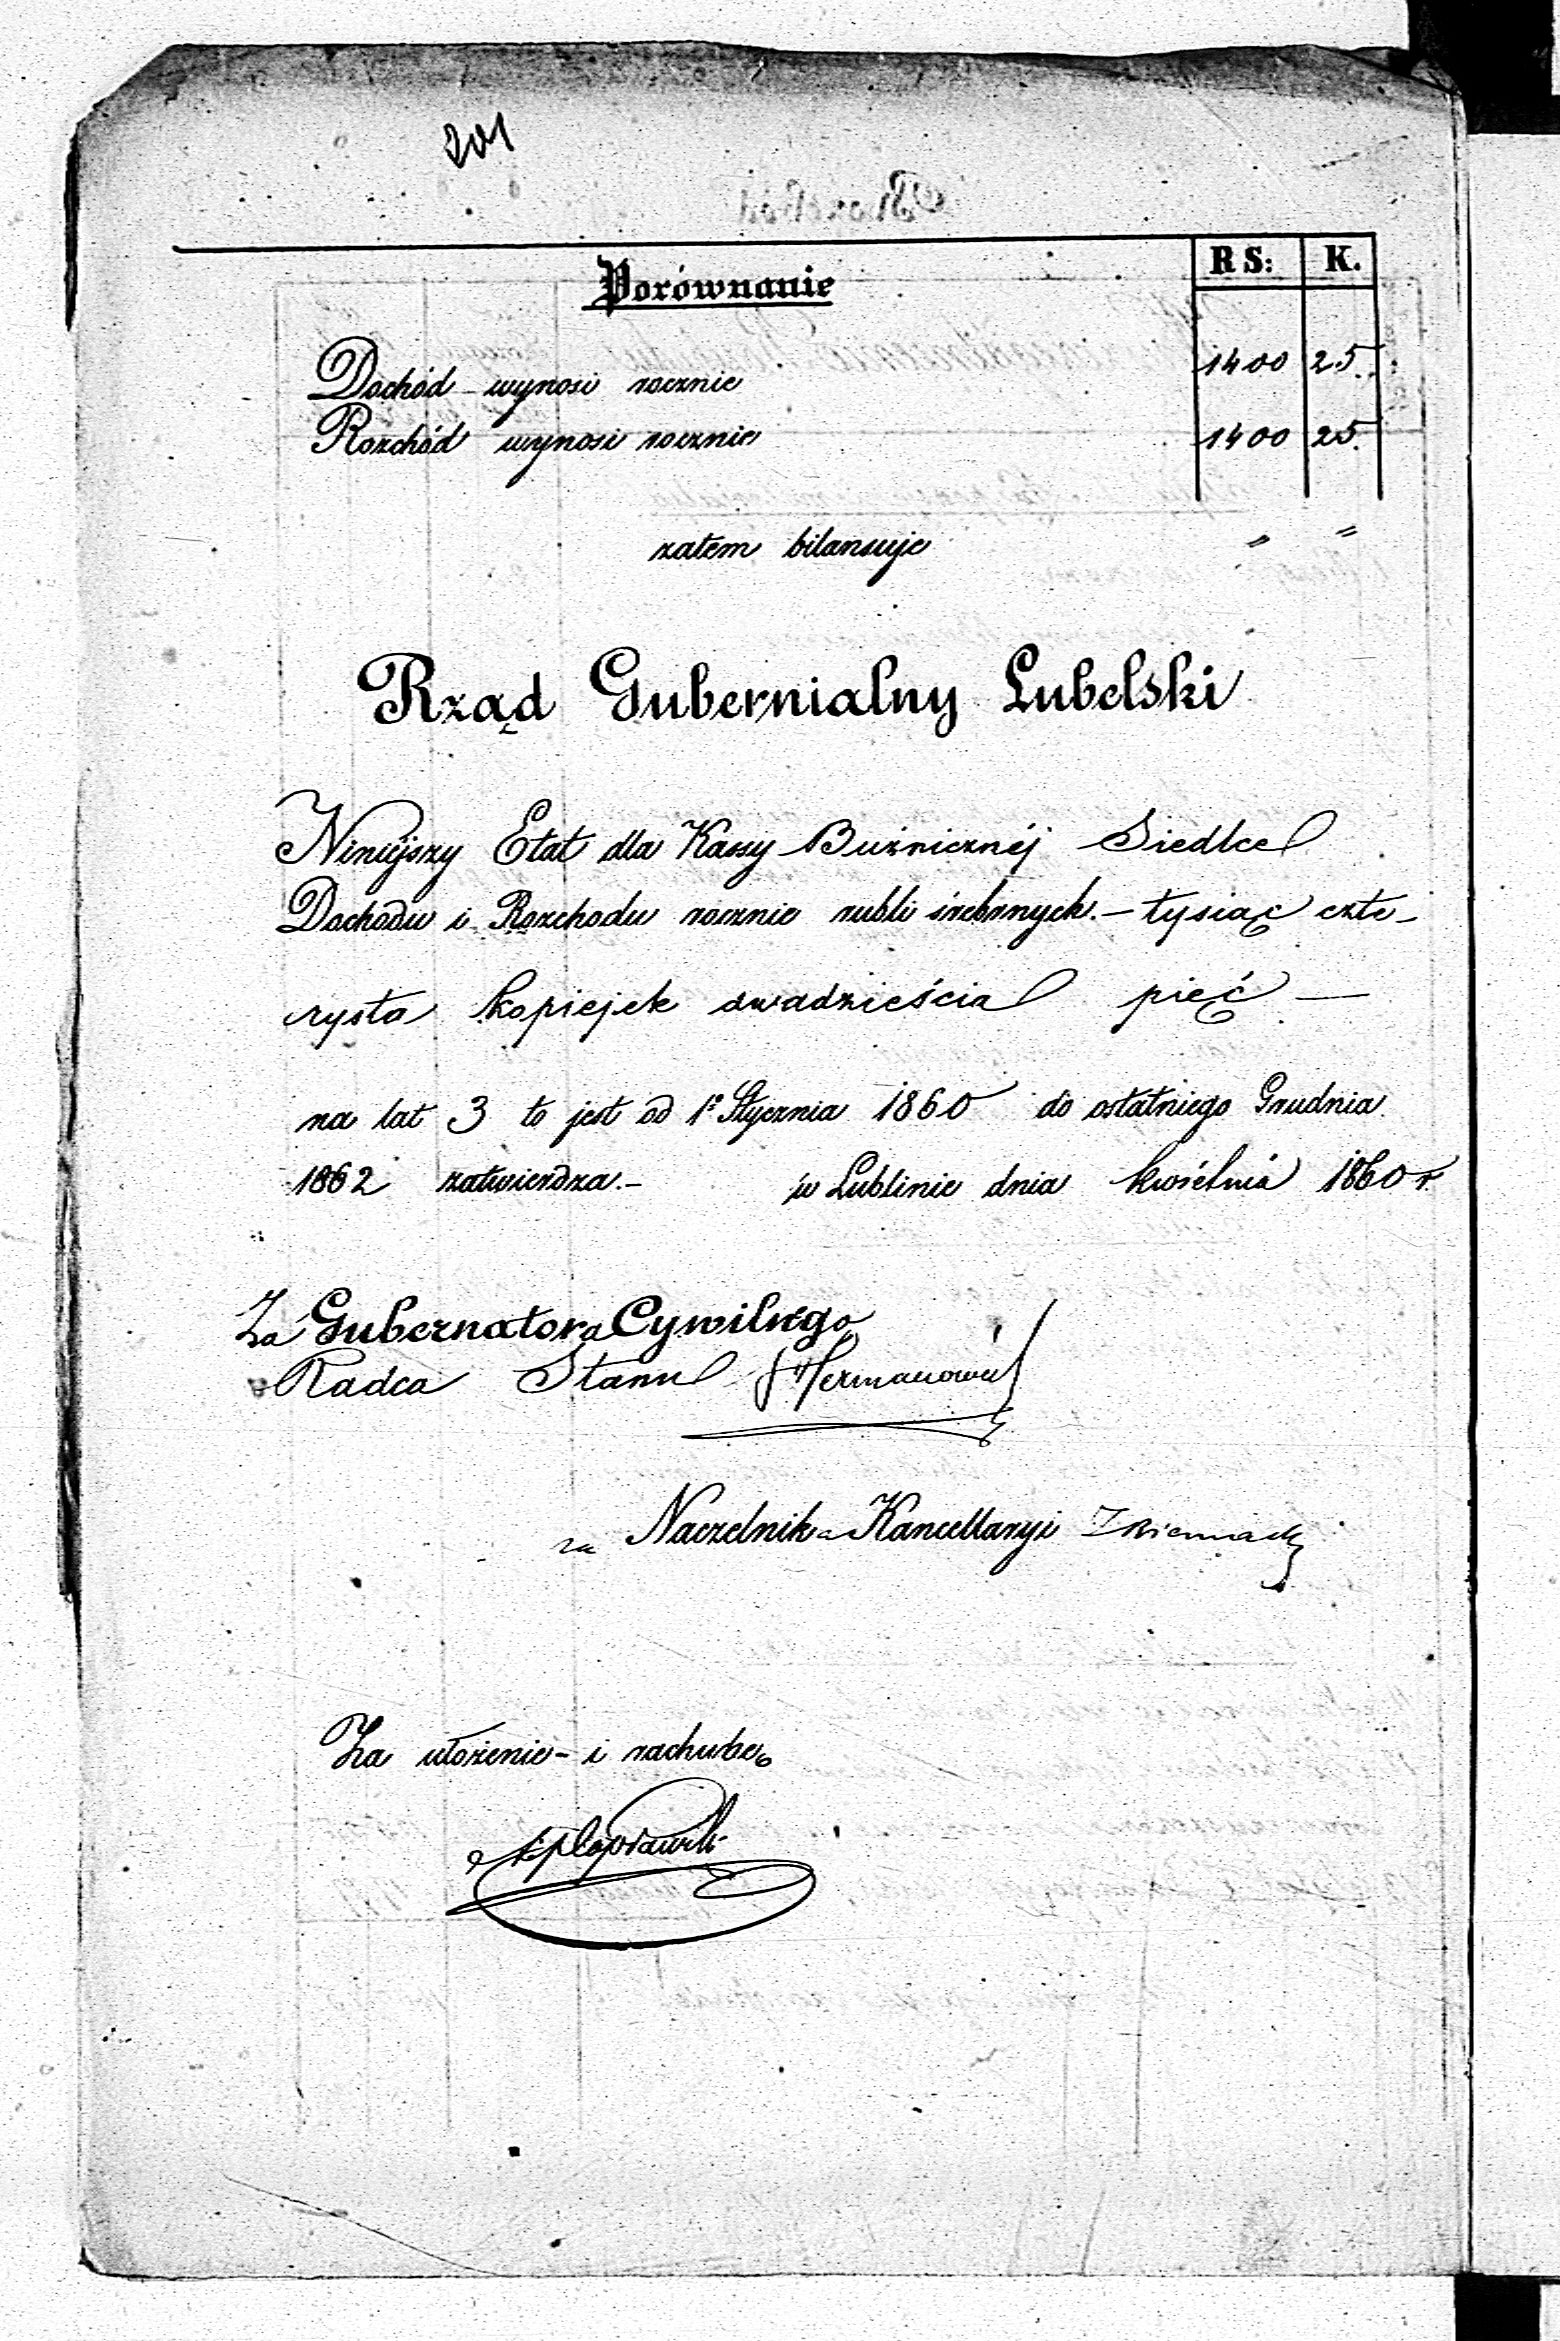 201
Porównanie
RS: K.
Dochód wynosi rocznie 1400 25.
Rozchód wynosi rocznie 1400 25.
zatem bilansuje " "
Rząd Gubernialny Lubelski
Niniéjszy Etat dla Kassy Bużnicznéj Siedlce
Dochodu i Rozchodu rocznie rubli śrebrnych.— tysiąc czte-
rysta kopiejek dwadzieścia pięć —
na lat 3 to jest od 1° Stycznia 1860 do ostatniego Grudnia
1862 zatwierdza.— w Lublinie dnia kwietnia 1860 r.
Za Gubernatora Cywilnego
Radca Stanu Hermanowicz
za Naczelnika Kancellaryi
Za ułożenie i rachubę